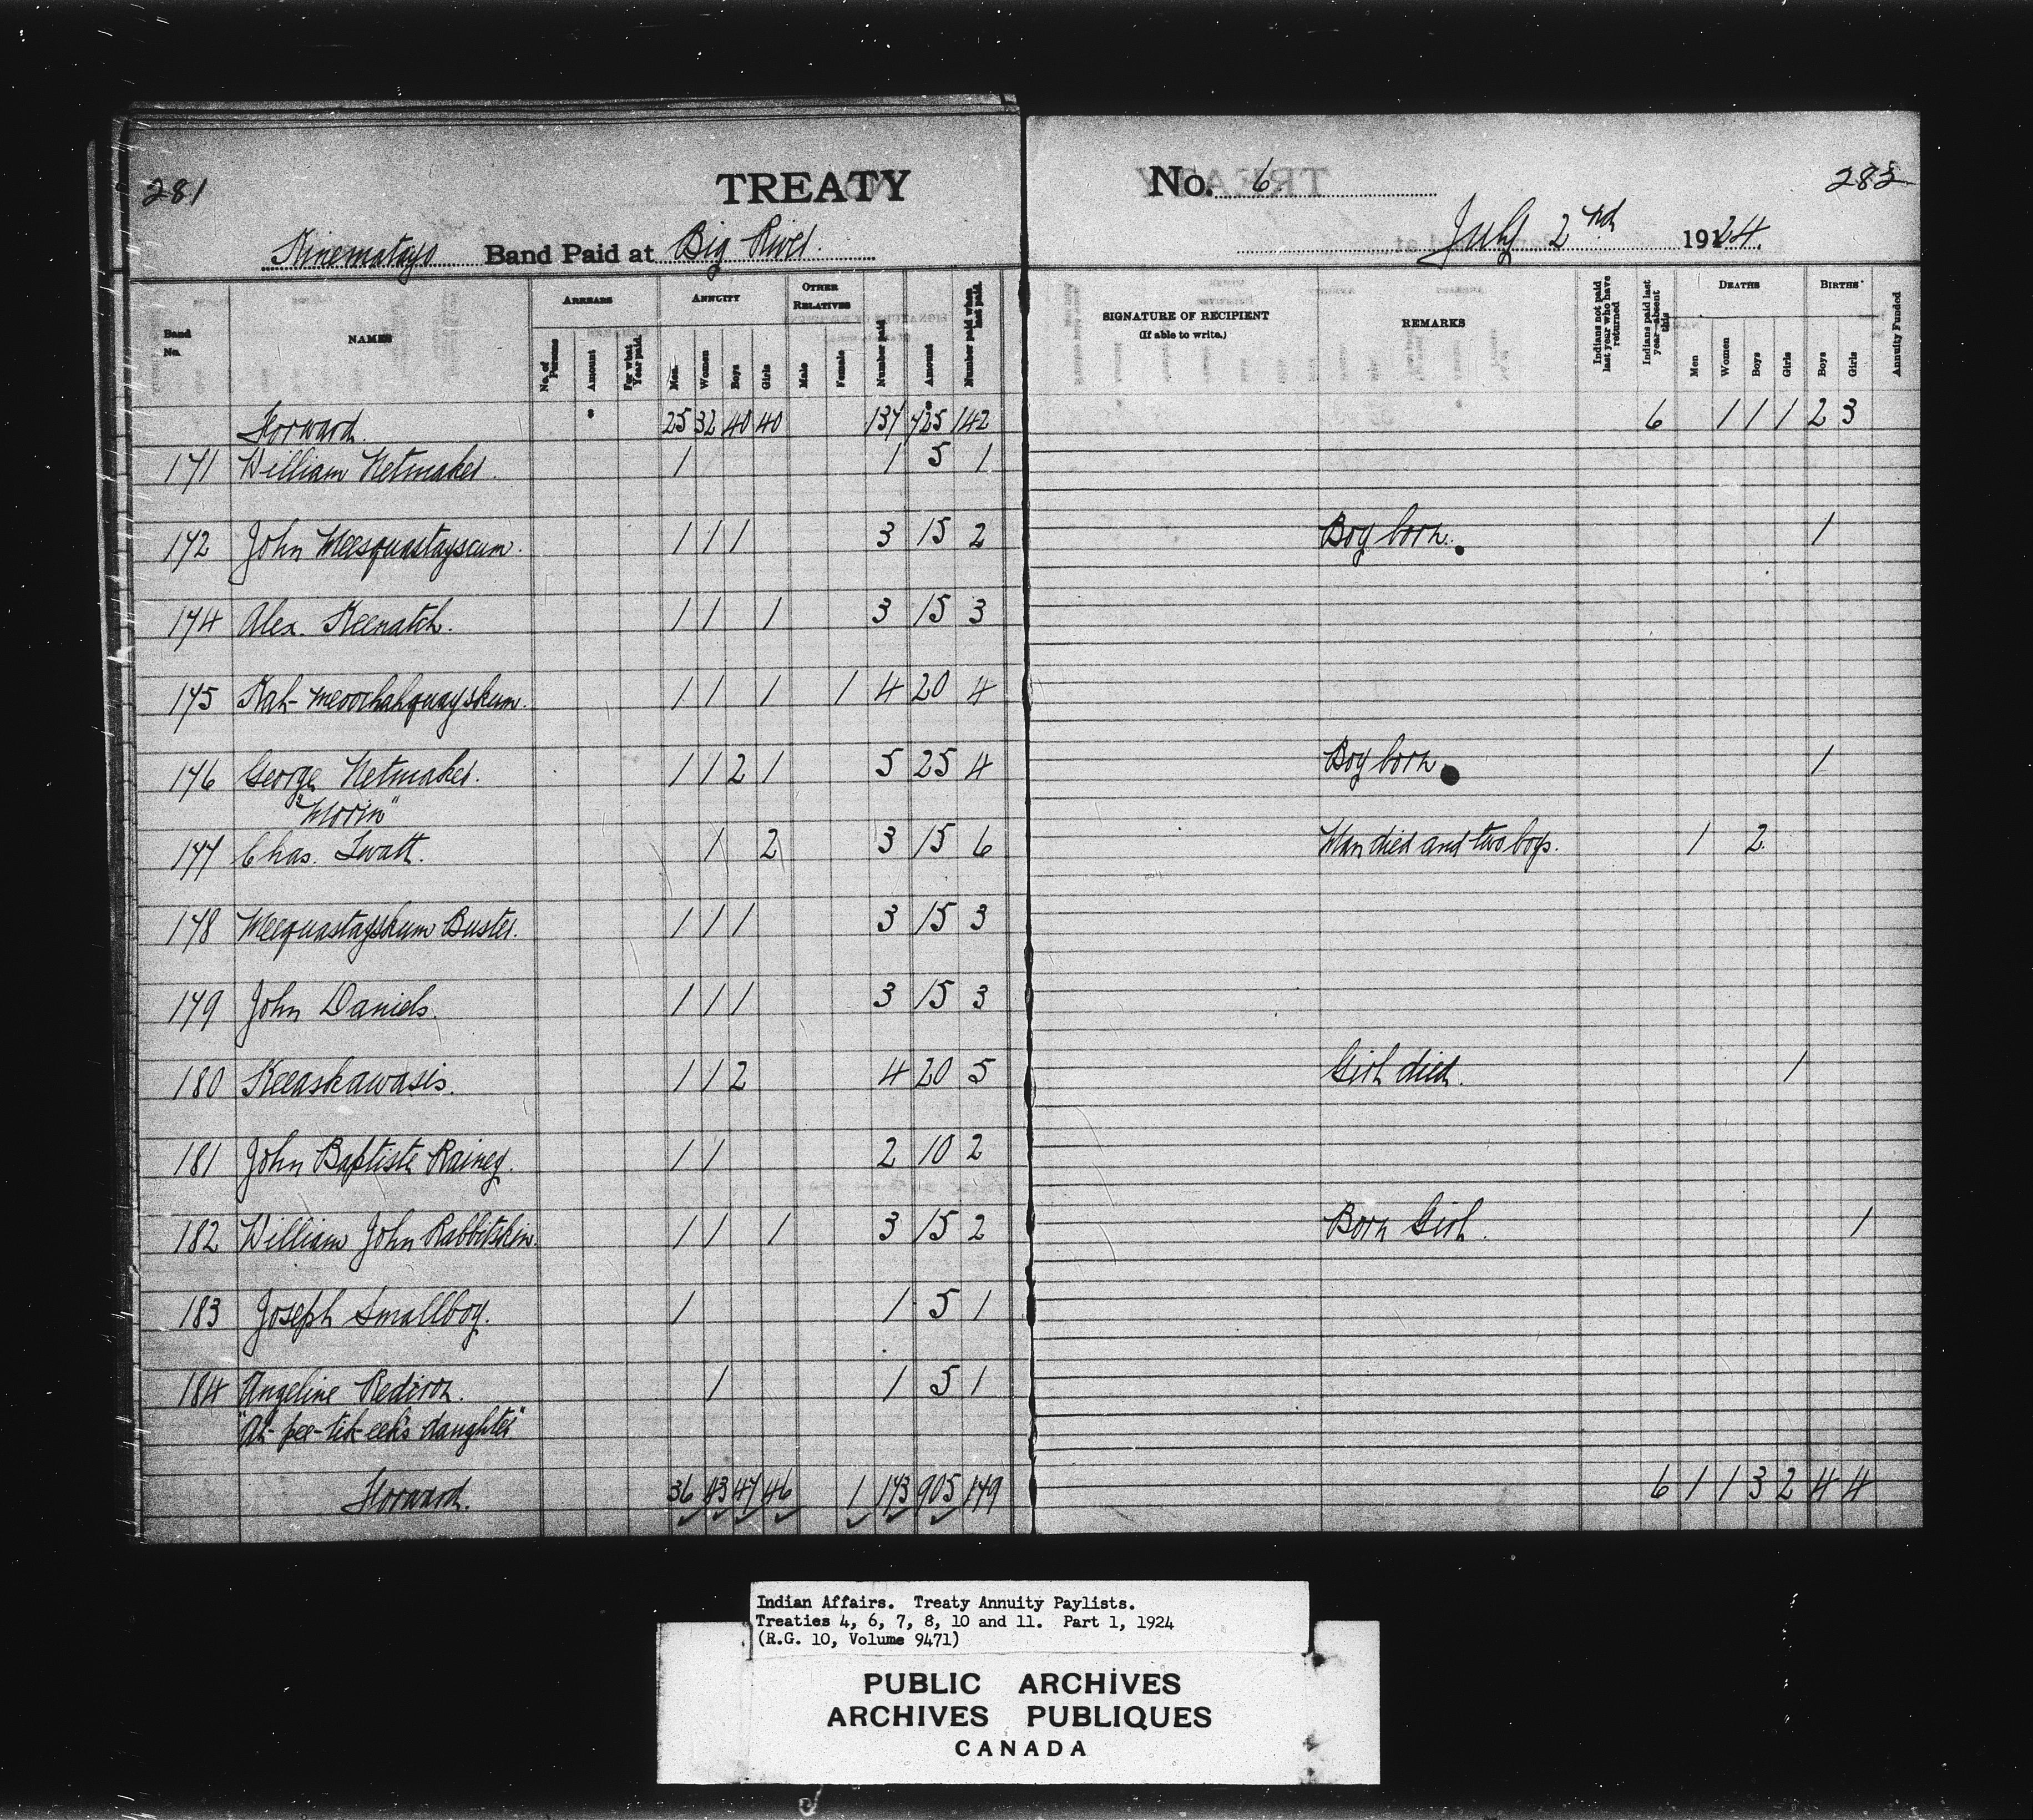 281
TREATY
No. 6.
282
Kinematayo Band Paid at Big River.
July 2nd 1924.
Band No.
NAMES
ARREARS
No. of Persons
Amount
For what Year paid.
ANNUITY
Men.
Women
Boys
Girls
OTHER RELATIVES
Male
Female
Number paid
Amount
Number paid when last paid.
SIGNATURE OF RECIPIENT
(If able to write.)
REMARKS
Indians not paid last year who have returned
Indians paid last year—absent this
DEATHS
Men
Women
Boys
Girls
BIRTHS
Boys
Girls
Annuity Funded
$ $
Forward. 25 32 40 40 137 725 142 6 1 1 1 2 3
171 William Netmaker. 1 1 5 1
172 John Weesquastayscum. 1 1 1 3 15 2 Boy born. 1
174 Alex. Keenatch. 1 1 1 3 15 3
175 Kah-meoochahquayskum. 1 1 1 1 4 20 4
176 George Netmaker. 1 1 2 1 5 25 4 Boy born. 1
"Morin"
177 Chas. Twatt. 1 2 3 15 6 Man died and two boys. 1 2
178 Weequastayskum Buster. 1 1 1 3 15 3
179 John Daniels. 1 1 1 3 15 3
180 Keeaskawasis. 1 1 2 4 20 5 Girl died. 1
181 John Baptiste Rainey. 1 1 2 10 2
182 William John Rabbitskin. 1 1 1 3 15 2 Born Girl. 1
183 Joseph Smallboy. 1 1 5 1
184 Angeline Rediron. 1 1 5 1
"Ah-pee-tik-eek's daughter"
Forward. 36 43 47 46 1 173 905 179 6 1 1 3 2 4 4
Indian Affairs. Treaty Annuity Paylists.
Treaties 4, 6, 7, 8, 10 and 11. Part 1, 1924
(R.G. 10, Volume 9471)
PUBLIC ARCHIVES
ARCHIVES PUBLIQUES
CANADA